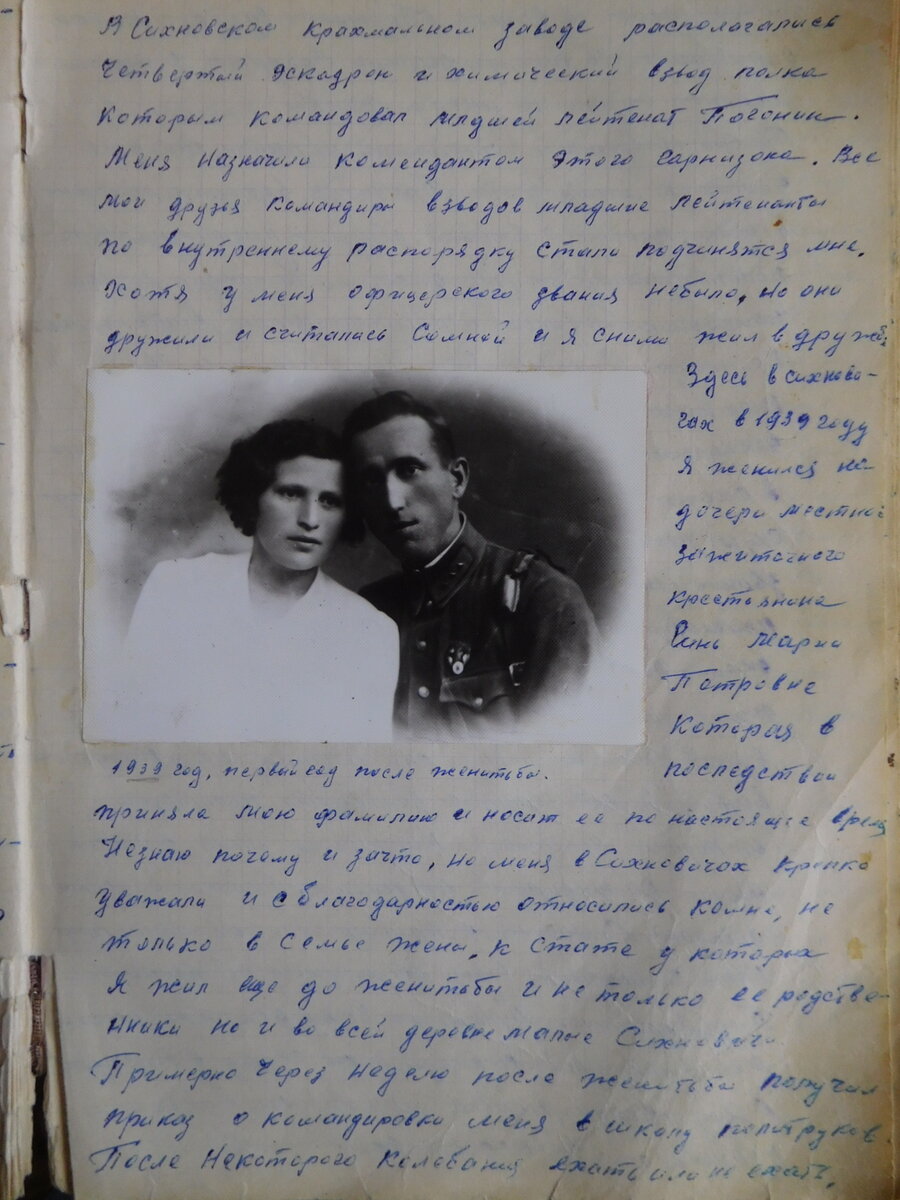 В Сихновском крахмальном заводе распологались
Четвертый эскадрон и химический взвод полка
которым командовал младшей лейтенат Погонин.
Меня назначили комендантом этого гарнизона. Все
мои друзья командиры взводов младшие лейтенанты
по внутреннему распорядку стали подчинятся мне.
Хотя у меня офицерского звания небыло, но они
дружили и считались Сомной и я сними жил в дружбе
Здесь в сихнови-
чах в 1939 году
я женился на
дочери местно
зажиточного
крестьянина
Марии
Петровне
которая в
последствии
1939 год, первый год после женитьбы.
приняла мою фамилию и носит ее по настоящее время
Незнаю почему и зачто, но меня в Сихновичах крепко
уважали и с благодарностью относились комне, не
только в семье жены, к стате у которых
я жил еще до женитьбы и не только ее родстве-
нники но и во всей деревне Малые Сихновичи
Примерно через неделю после женитьбы получил
приказ о командировки меня в школу политруков.
После некоторого колебания ехать или не ехать,